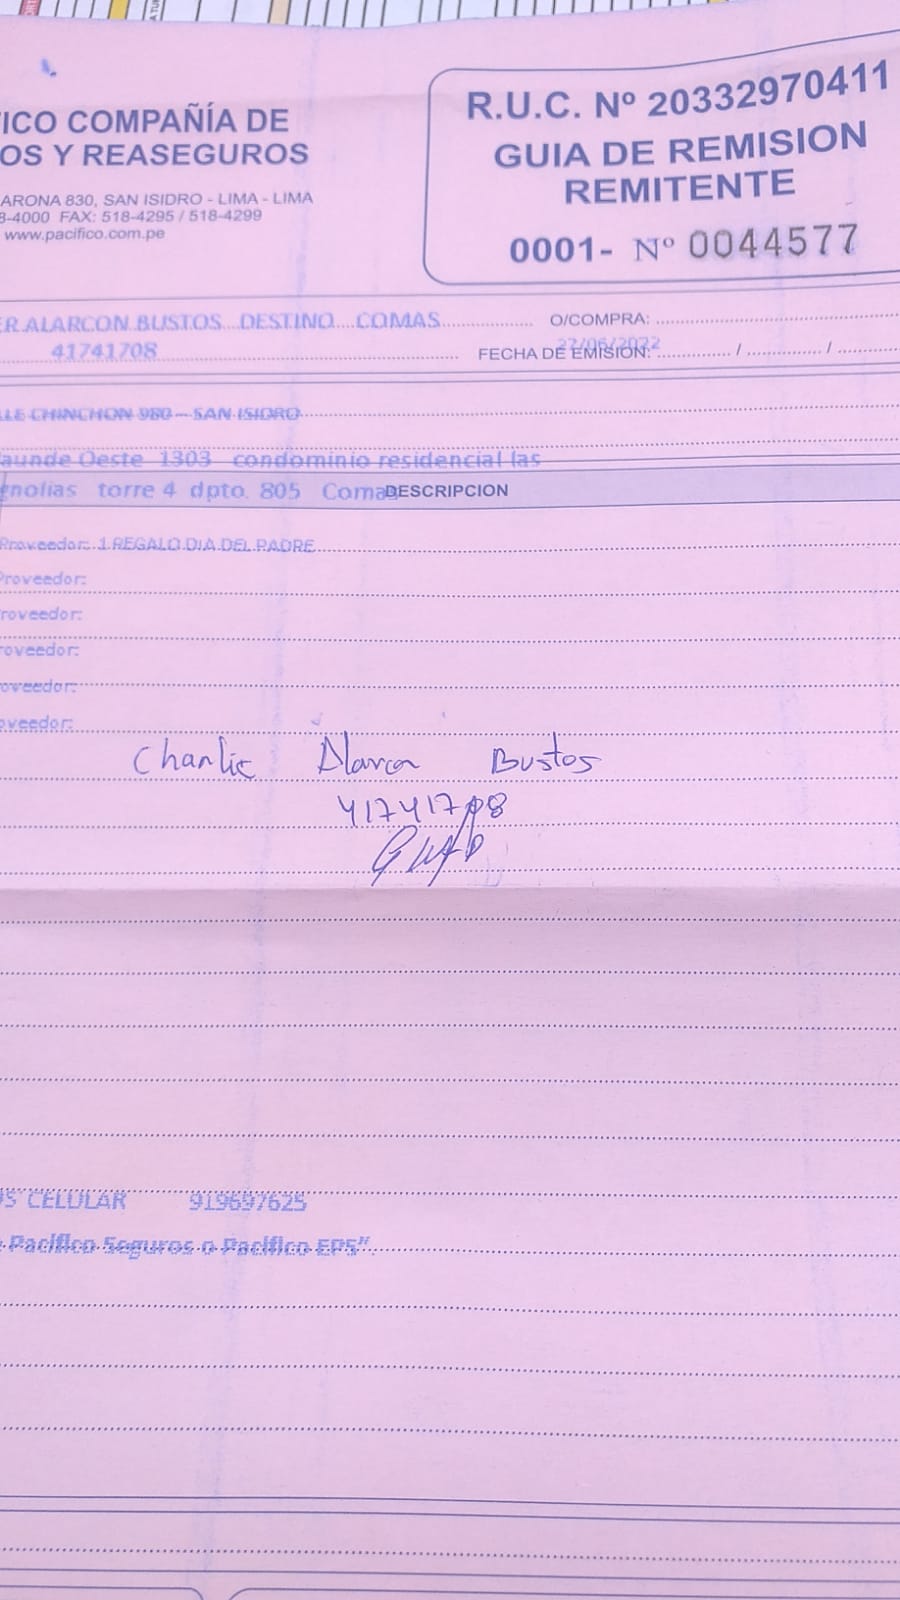 ICO COMPAÑÍA DE
OS Y REASEGUROS
ARONA 830, SAN ISIDRO - LIMA - LIMA
8-4000 FAX: 518-4295 / 518-4299
www.pacifico.com.pe
R.U.C. Nº 20332970411
GUIA DE REMISION
REMITENTE
0001- Nº 0044577
ER ALARCON BUSTOS DESTINO COMAS
O/COMPRA:
41741708
FECHA DE EMISIÓN: 27/06/2022 / /
LLE CHINCHON 980 - SAN ISIDRO
aunde Oeste 1303 condominio residencial las
gnolias torre 4 dpto. 805 Comas
DESCRIPCION
Proveedor: 1 REGALO DIA DEL PADRE
Proveedor:
roveedor:
roveedor:
oveedor:
oveedor:
Charlie Alarcon Bustos
41741708
US CELULAR 919697625
Pacifico Seguros o Pacifico EPS”